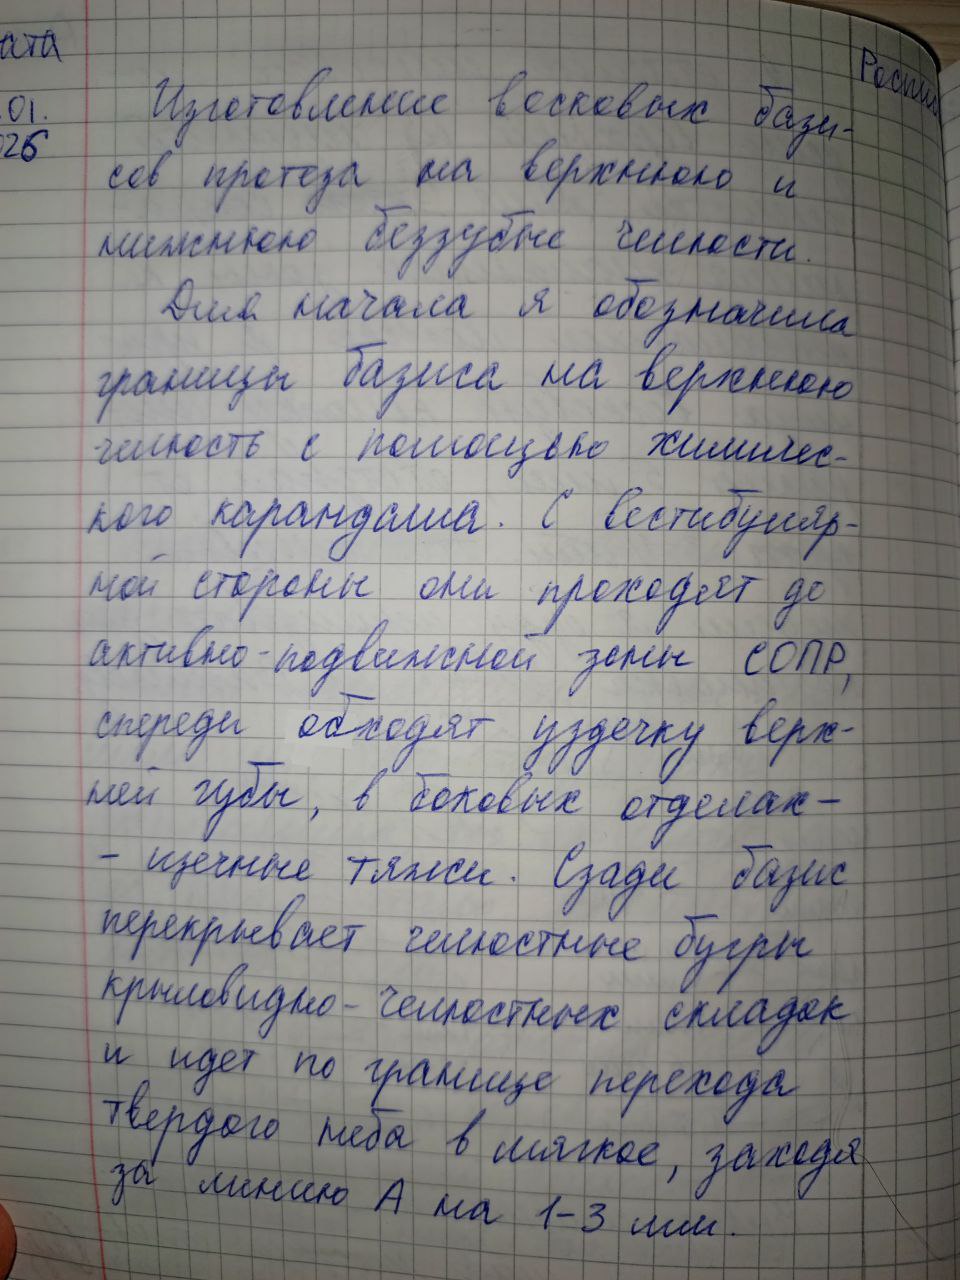 ата
.01.
026
Роспи
Изготовление восковых бази-
сов протеза на верхнюю и
нижнюю беззубые челюсти.
Для начала я обозначила
границы базиса на верхнюю
челюсть с помощью химичес-
кого карандаша. С вестибуляр-
ной стороны они проходят до
активно-подвижной зоны СОПР,
спереди обходят уздечку верх-
ней губы, в боковых отделах -
- щечные тяжи. Сзади базис
перекрывает челюстные бугры
крыловидно-челюстных складок
и идет по границе перехода
твердого неба в мягкое, заходя
за линию А на 1-3 мм.